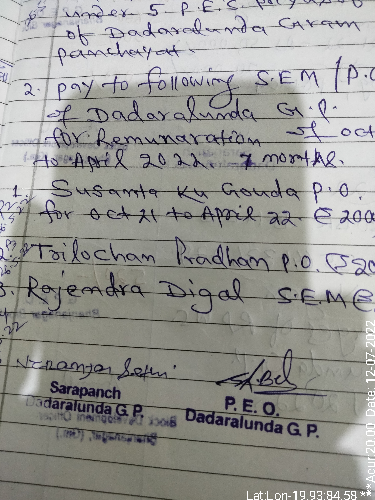 under 5 P.E.S
of Dadaralunda Gram
panchayat.
2. pay to following S.E.M / P.O
of Dadaralunda G.P.
for Remunaration of oct
to April 2022. 7 months.
1. Susanta Ku Gouda P.O.
for oct 21 to April 22. @ 200
2. Trilochan Pradhan P.O. @ 20
3. Rajendra Digal S.E.M @
Sarapanch
Dadaralunda G.P.
P. E. O.
Dadaralunda G. P.
Lat:Lon-19.93:84.58 **Acur:20.00 Date:12-07-2022